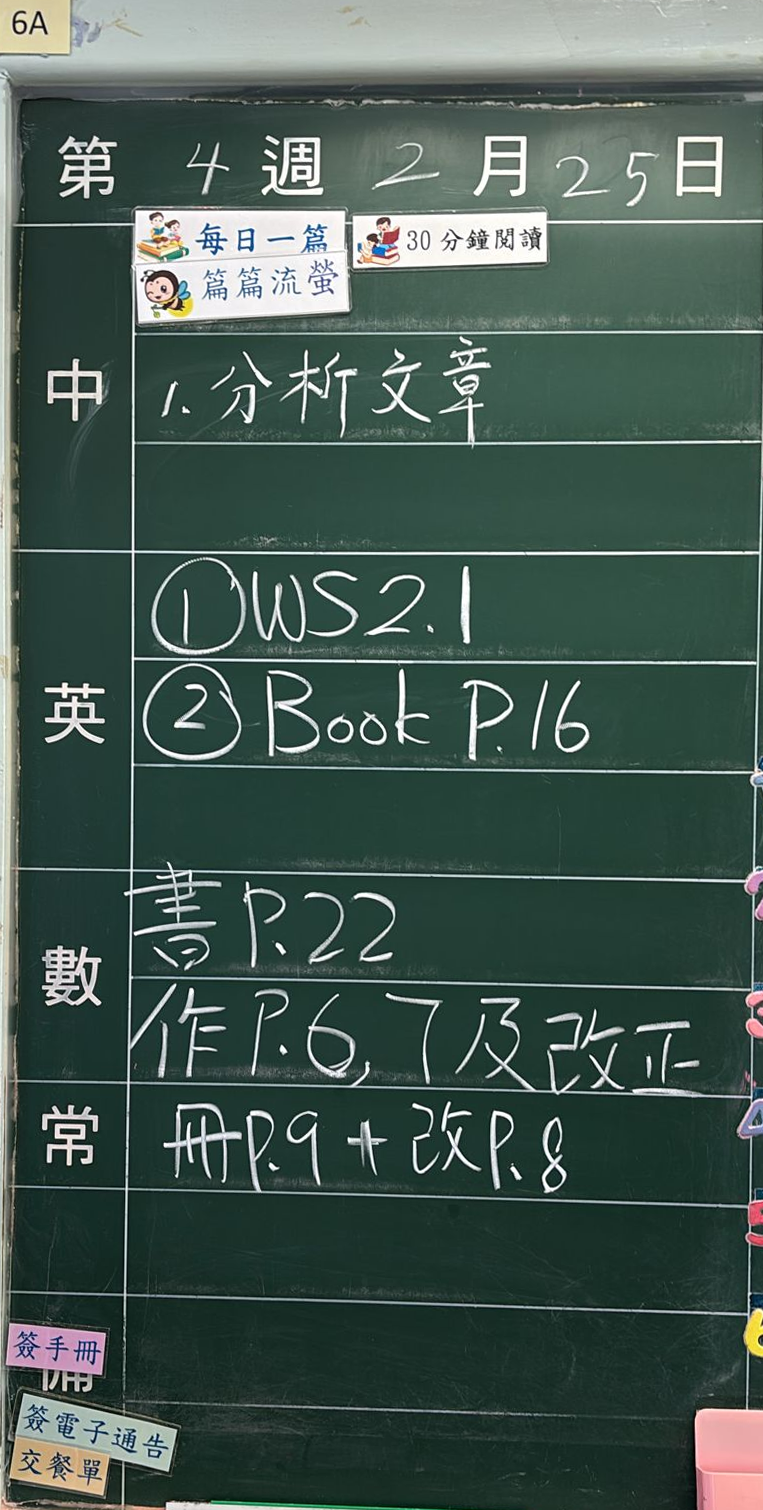 6A
第 4 週 2 月 25 日
每日一篇 30分鐘閱讀
篇篇流螢
中
1. 分析文章
英
① WS2.1
② Book P.16
數
書 P.22
作 P.6, 7 及改正
常
冊P.9 + 改P.8
簽手冊
備
簽電子通告
交餐單